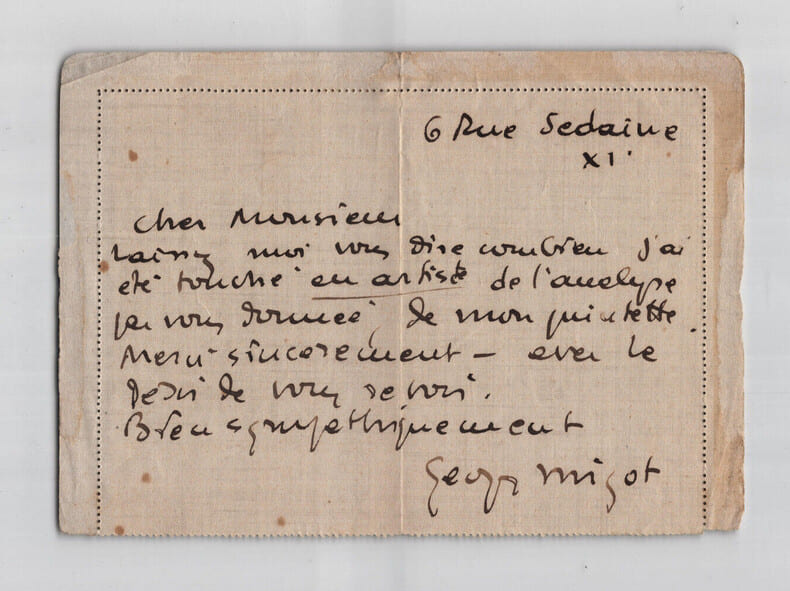 6 Rue Sedaine
XI
Cher Monsieur
laissez moi vous dire combien j'ai
été touché en artiste de l'analyse
par vous donnée, de mon quintette.
Merci sincèrement – avec le
désir de vous revoir.
Bien sympathiquement
Georges Migot